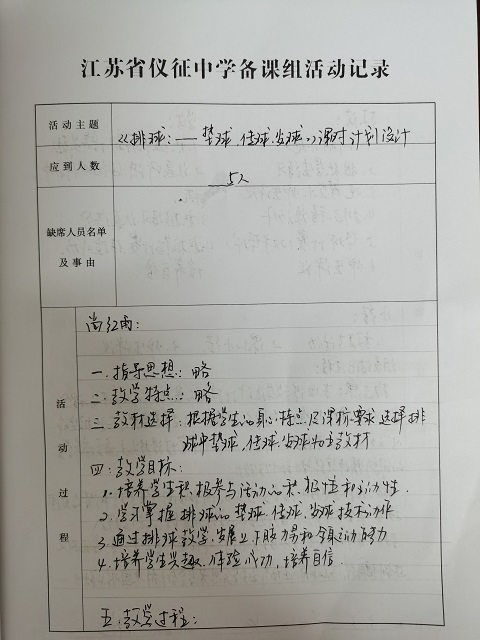 江苏省仪征中学备课组活动记录
活动主题
《排球:——垫球、传球、发球》课时计划设计
应到人数
5人
缺席人员名单
及事由
活动过程
尚红雨:
一.指导思想:略
二.教学特点:略
三.教材选择:根据学生的身心特点及课标要求选择排
球中垫球、传球、发球为主教材
四:教学目标:
1.培养学生积极参与活动的积极性和主动性.
2.学习掌握排球的垫球、传球、发球技术动作
3.通过排球教学,发展上下肢力量和全身运动能力
4.培养学生兴趣,体验成功,培养自信.
五.教学过程: